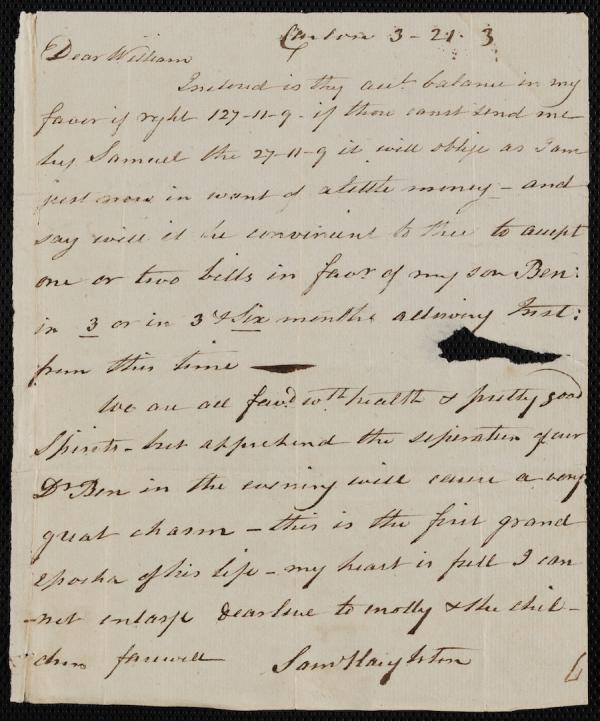 Carlow 3-21. 3
Dear William
Inclosed is thy acct. balance in my
favor if right 127-11-9. if thou canst send me
by Samuel the 27-11-9 it will oblige as I am
just now in want of a little money - and
say will it be convinient to thee to accept
one or two bills in favr. of my son Ben:
in 3 or in 3 & Six months allowing Inst:
from this time
We are all favd. wth. health & pretty good
Spirits - but apprehend the seperation of our
Dr. Ben in the evening will cause a very
great chasm - this is the first grand
Epocha of his life - my heart is full I can
-not enlarge Dear love to Molly & the chil-
dren farewell Saml Haughton